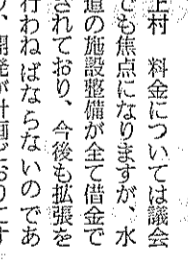 上村　料金については議会
でも焦点になりますが、水
道の施設整備が全て借金で
されており、今後も拡張を
行わねばならないのであ
り、開発が計画どおりにす